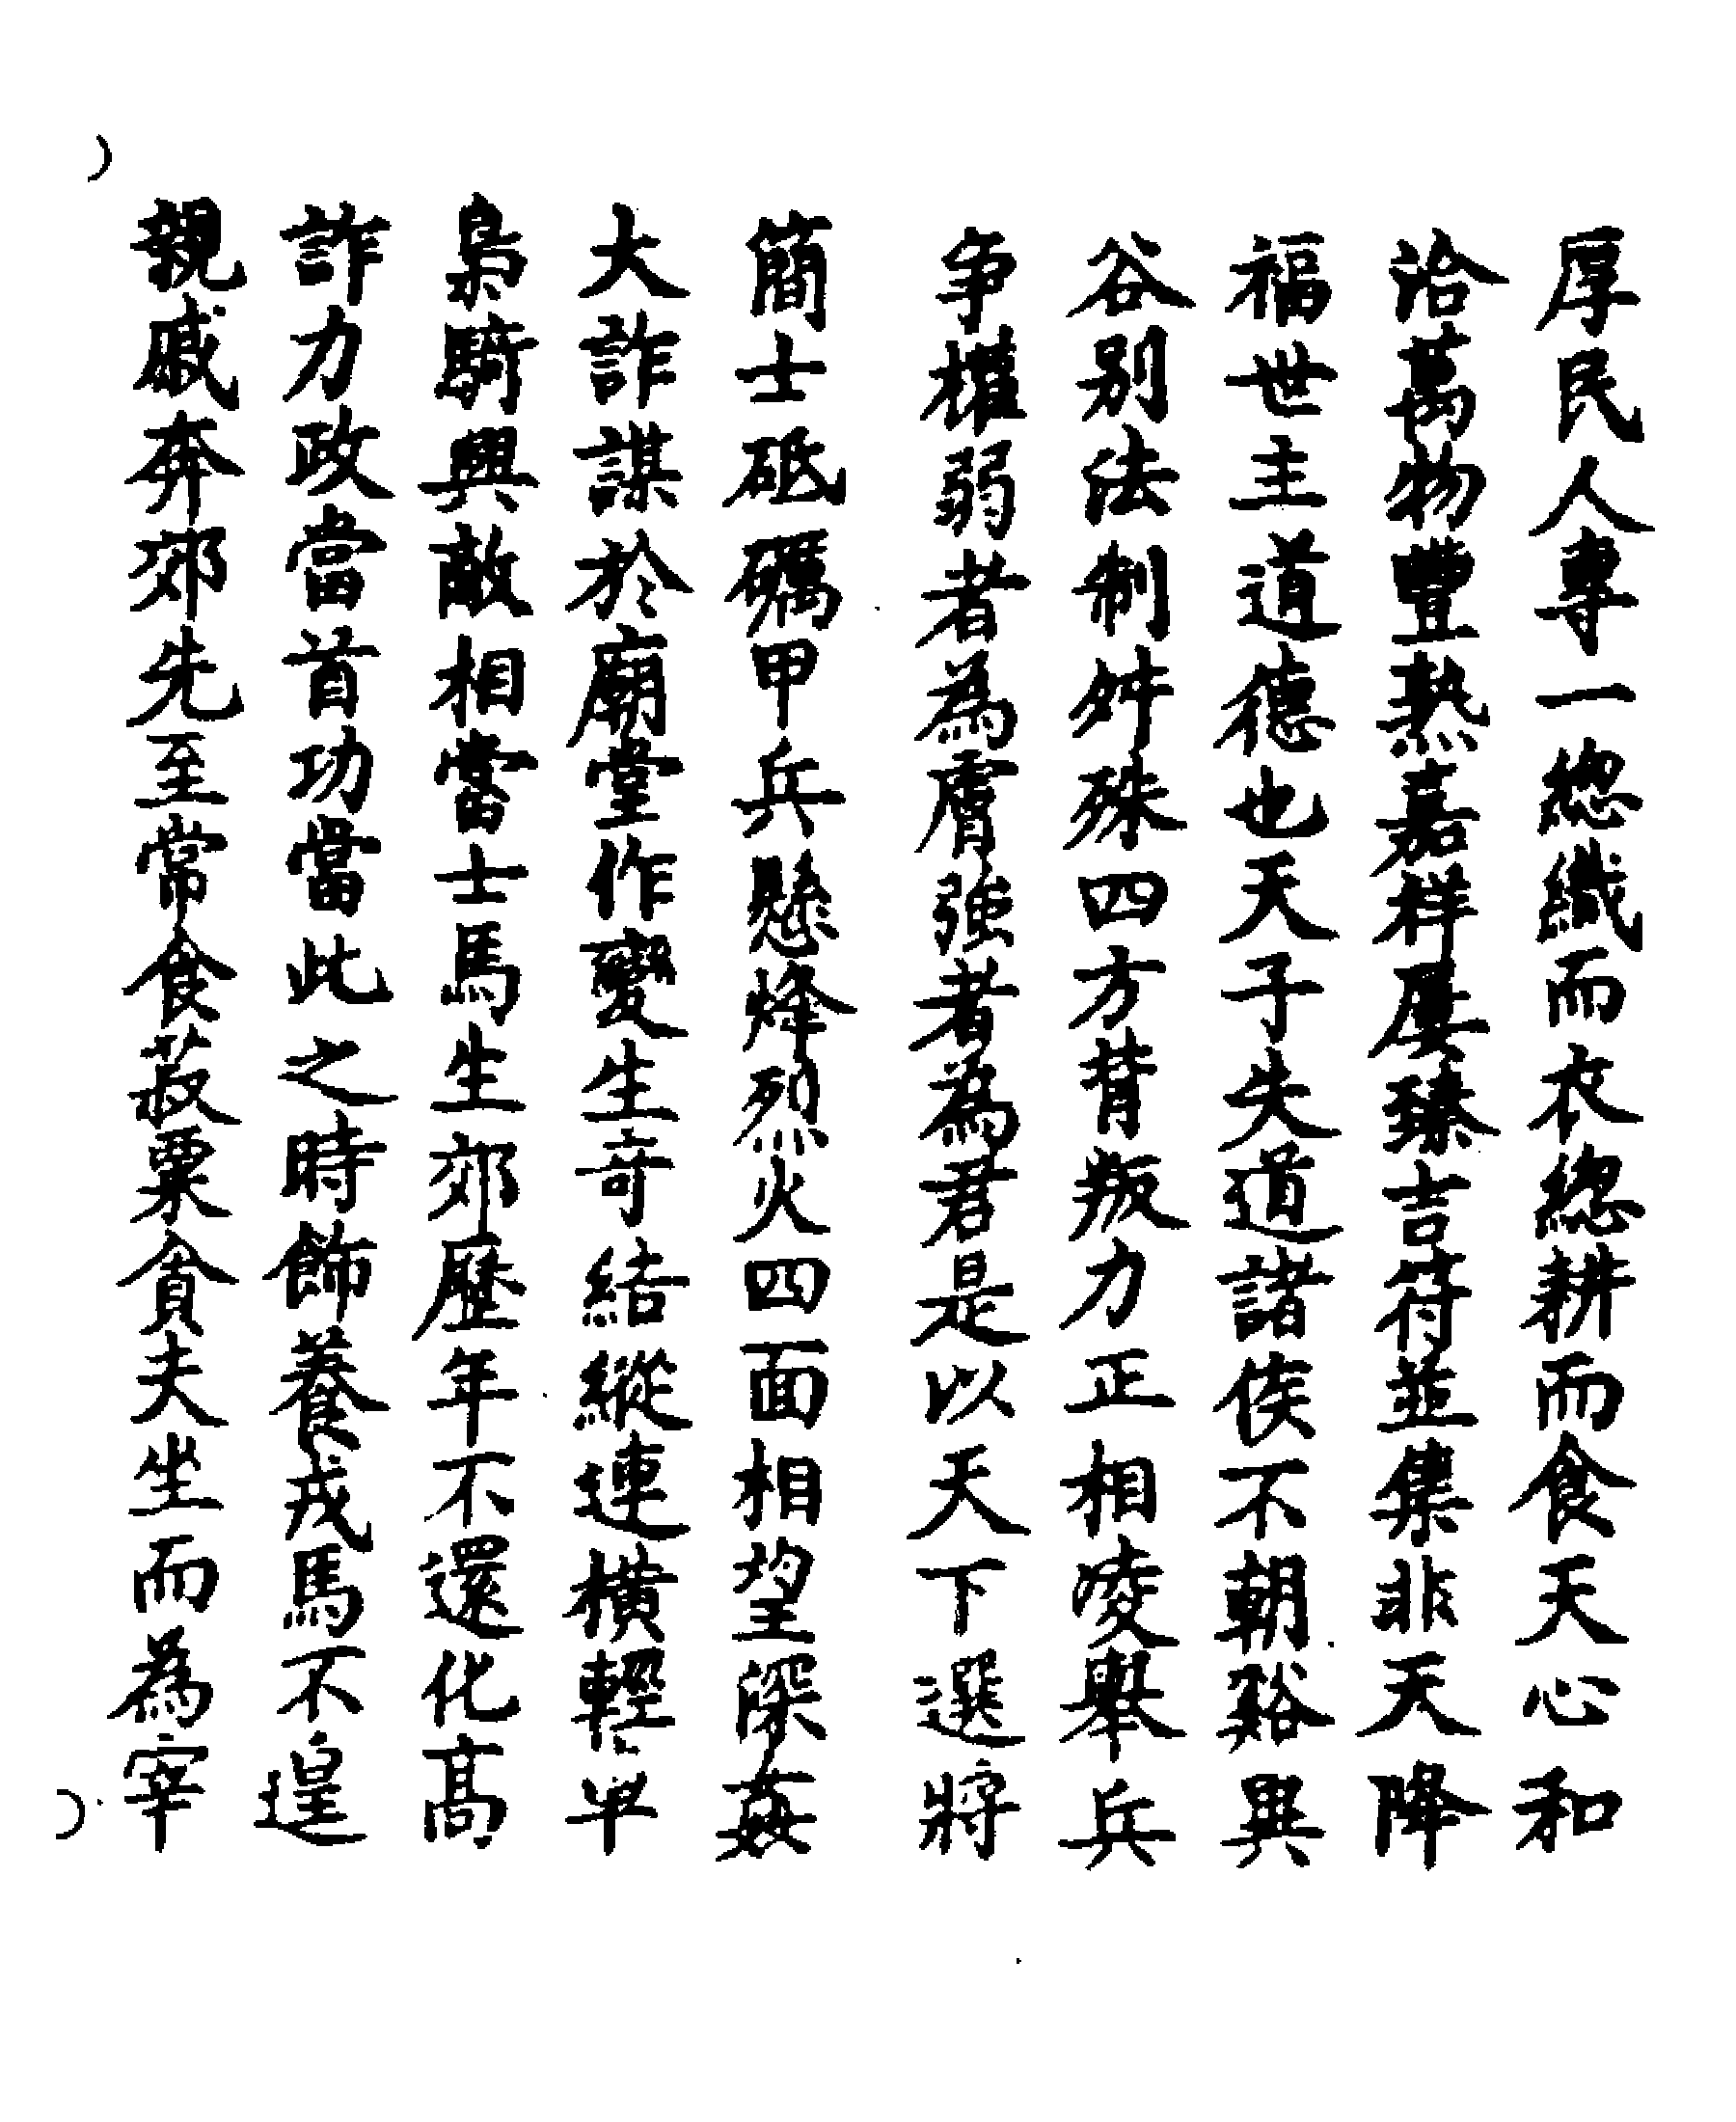 厚民人專一緫織而衣緫耕而食天心和
洽萬物豐熟嘉祥屢臻吉符並集非天降
福世主道德也天子失道諸侯不朝谿異
谷别法制舛殊四方背叛力正相凌舉兵
争權弱者為虜強者為君是以天下選將
簡士砥礪甲兵懸烽烈火四面相望深姦
大詐謀於廟堂作變生奇結縱連横輕卒
梟騎興敵相當士馬生郊歷年不還化高
詐力政當首功當此之時飾養戎馬不遑
親戚奔郊先至常食菽粟貪夫坐而為宰